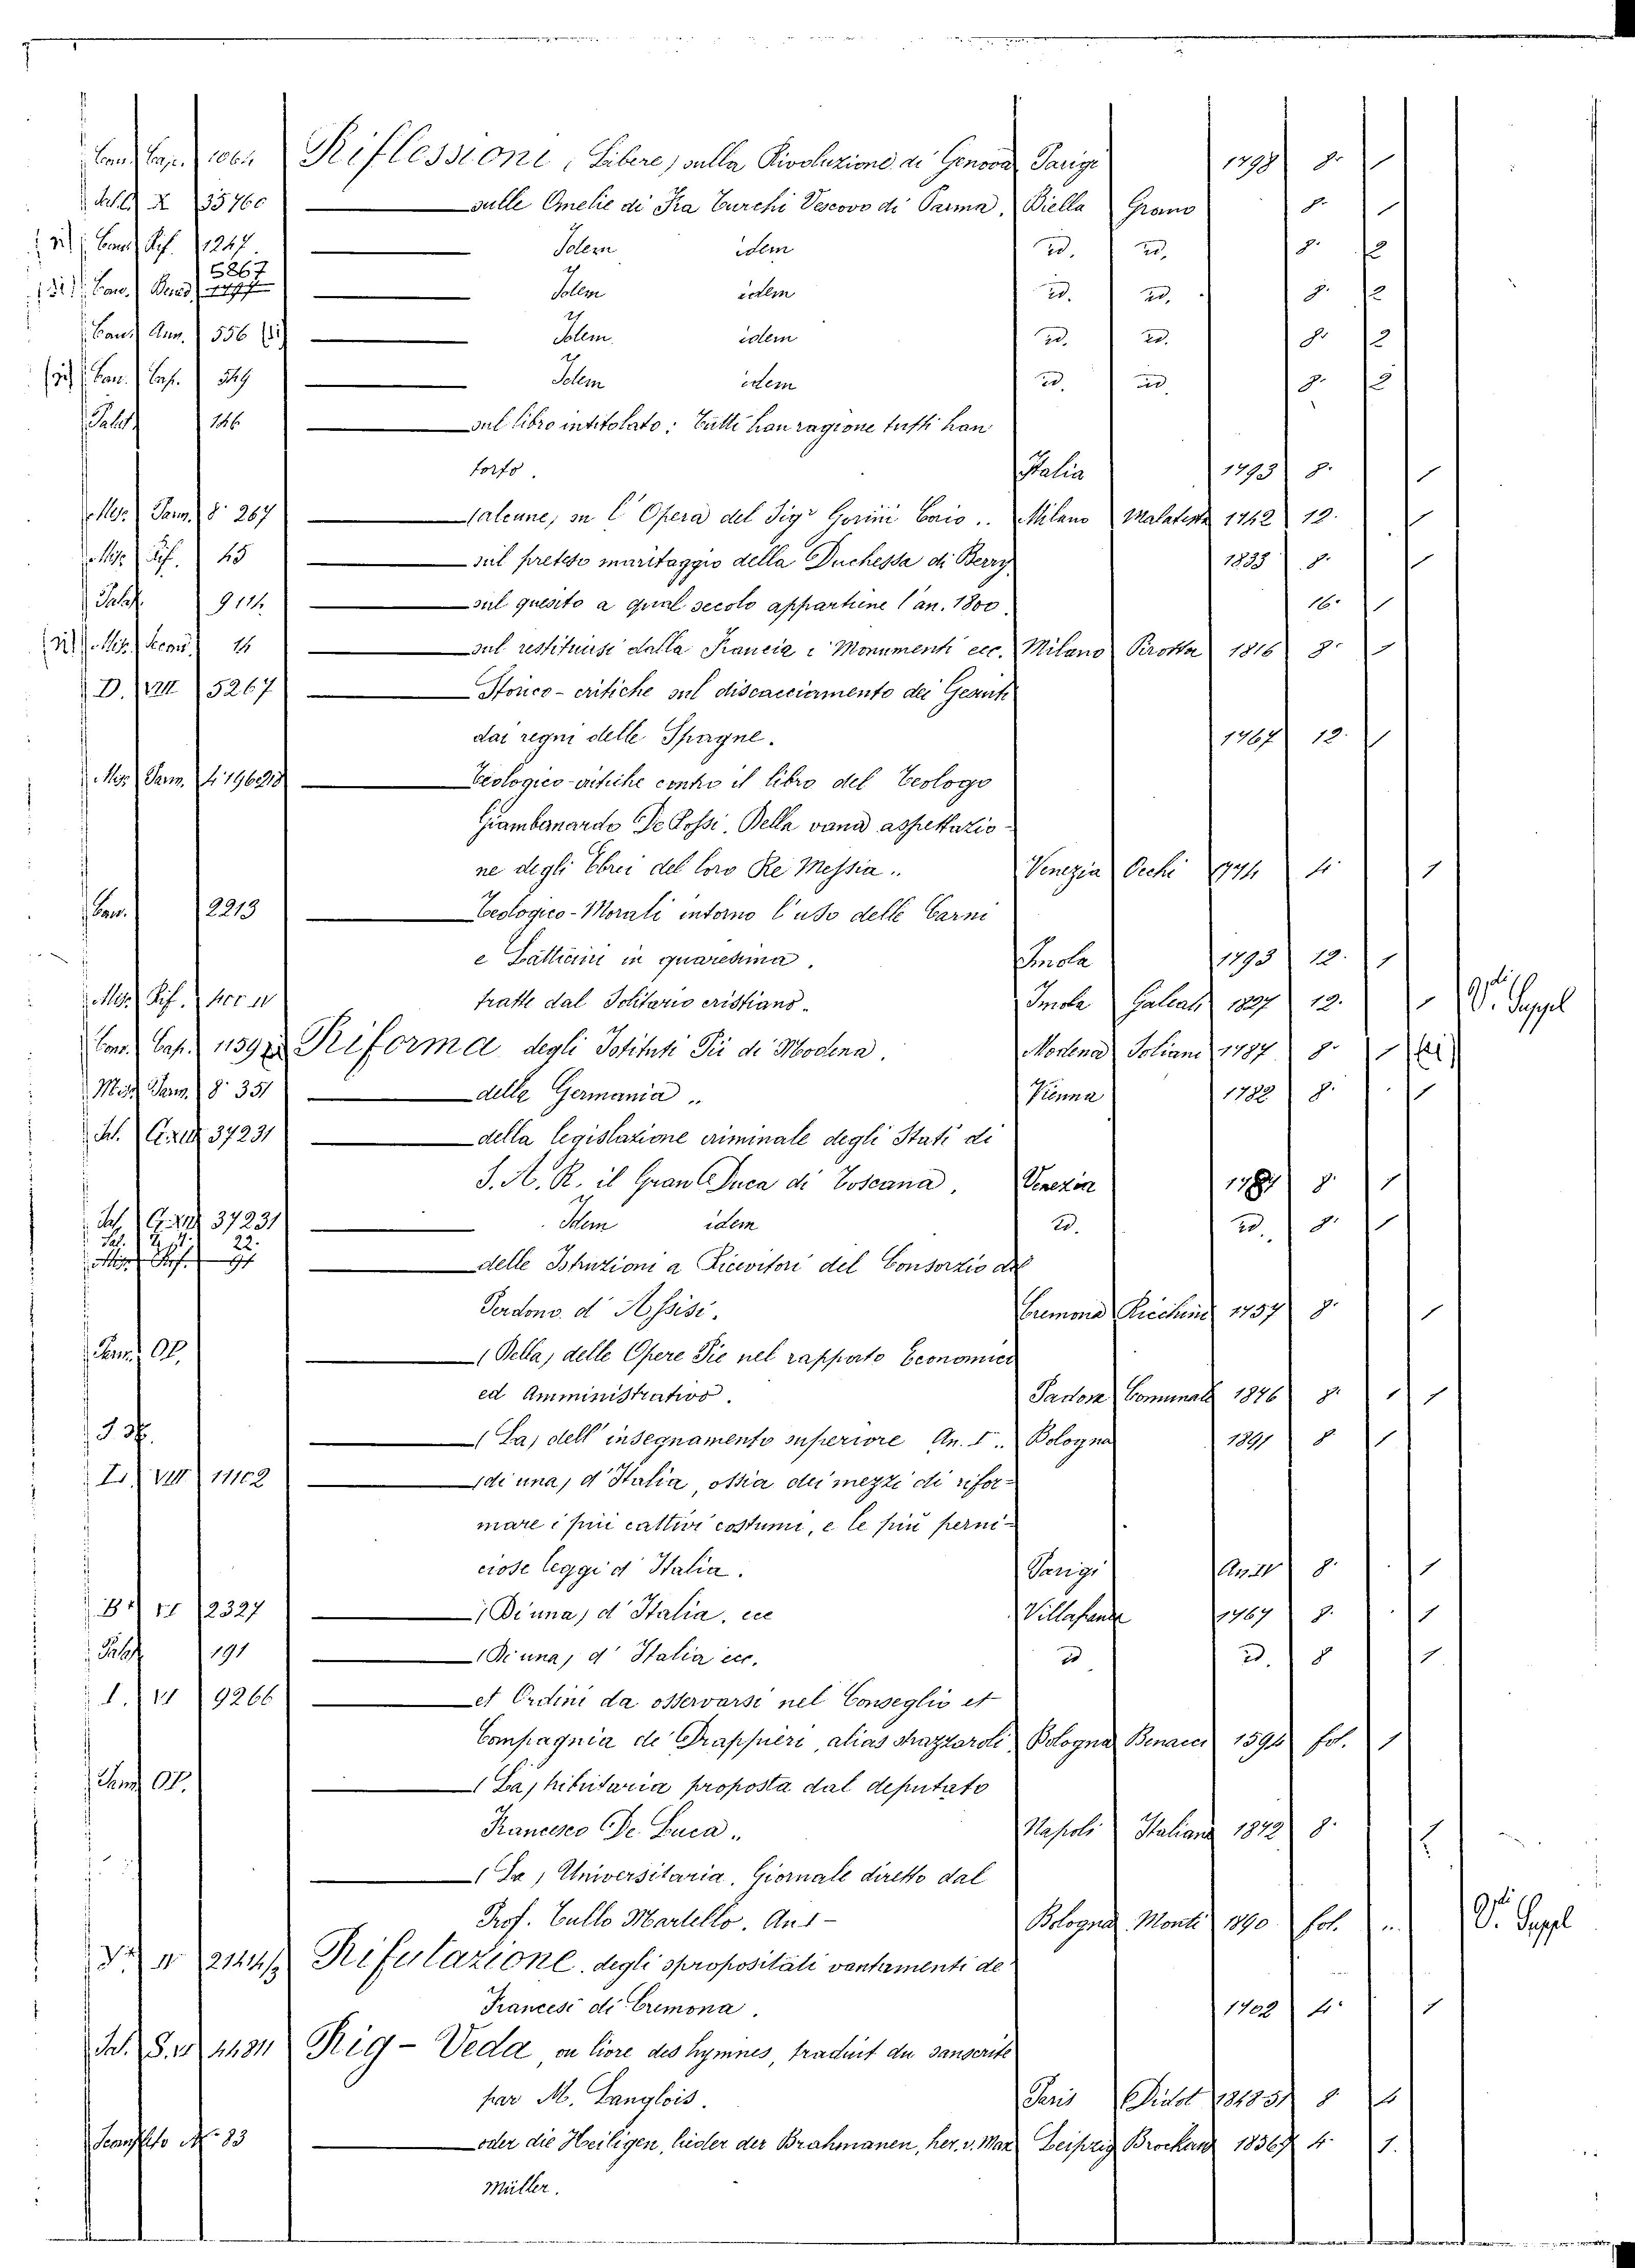 Can. Cap. 1064 Riflessioni, (Libere) sulla Rivoluzione di Genova Parigi 1798 8.° 1
Sal. X 35760 — sulle Omelie di Fra Turchi Vescovo di Parma. Biella Grano 8.° 1
Can. Rif. 1247 — Idem idem id. id. 8.° 2
5867
Can. — Idem idem id. id. 8.° 2
Can. Ann. 556 — Idem idem id. id. 8.° 2
Can. Cap. 549 — Idem idem id. id. 8.° 2
Palat. 146 — sul libro intitolato: Tutti han ragione tutti han
torto. Italia 1793 8.° 1
Misc. Parm. 8.° 267 — (alcune) su l'Opera del Sig.r Gorini Corio.. Milano Malatesta 1742 12.° 1
Misc. Rif. 45 — sul preteso maritaggio della Duchessa di Berry 1833 8.° 1
Palat. 9114 — sul quesito a qual secolo appartiene l'an. 1800. 16.° 1
Misc. Econ. 14 — sul restituirsi dalla Francia i Monumenti ecc. Milano Pirotta 1816 8.° 1
D. VIII 5267 — Storico-critiche sul discacciamento dei Gesuiti
dai regni delle Spagne. 1767 12.° 1
Misc. Parm. — Teologico-critiche contro il libro del Teologo
Giambernardo De Rossi. Della vana aspettazio-
ne degli Ebrei del loro Re Messia.. Venezia Occhi 1774 4.° 1
Can. 2213 — Teologico-Morali intorno l'uso delle Carni
e Latticini in quaresima. Imola 1793 12.° 1
Misc. Rif. — tratte dal Solitario cristiano. Imola Galeati 1827 12.° 1 V.di Suppl
Can. Cap. 11597 Riforma degli Istituti Pii di Modena. Modena Soliani 1787 8.° 1
Misc. Parm. 8.° 351 — della Germania.. Vienna 1782 8.° 1
Sal. G.XIII 37231 — della legislazione criminale degli Stati di
S. A. R. il Gran Duca di Toscana. Venezia 1787 8.° 1
Sal. G.XIII 37231 — Idem idem id. id. 8.° 1
22.
— delle Istruzioni a Ricevitori del Consorzio del
Perdono d'Assisi. Cremona Ricchini 1757 8.° 1
Parm. OP. — (Della) delle Opere Pie nel rapporto Economico
ed Amministrativo. Padova Comunale 1876 8.° 1 1
— (La) dell'insegnamento superiore An. I.. Bologna 1891 8 1
I. VIII 11102 — (di una) d'Italia, ossia dei mezzi di rifor-
mare i più cattivi costumi, e le più perni-
ciose leggi d'Italia. Parigi An IV 8.° 1
VI 2327 — (Di una) d'Italia, ecc Villafranca 1767 8.° 1
Palat. 191 — (Di una) d'Italia ecc. id id. 8 1
I. VI 9266 — et Ordini da osservarsi nel Conseglio et
Compagnia de Drappieri, alias strazzaroli, Bologna Benacci 1594 fol. 1
Parm. OP. — (La) tributaria proposta dal deputato
Francesco De Luca.. Napoli Italiana 1872 8.° 1
— (La) Universitaria. Giornale diretto dal
Prof. Tullo Martello. An 1- Bologna Monti 1890 fol. V.di Suppl
Rifutazione degli spropositati vantamenti de'
Francesi di Cremona. 1702 4.° 1
Sal. Rig-Veda, ou livre des hymnes, traduit du sanscrite
par M. Langlois. Paris Didot 1848 51 8 4
N.° 83 — oder die Heiligen, lieder der Brahmanen, her. v. Max Leipzig Brockaus 4.° 1.
Müller.